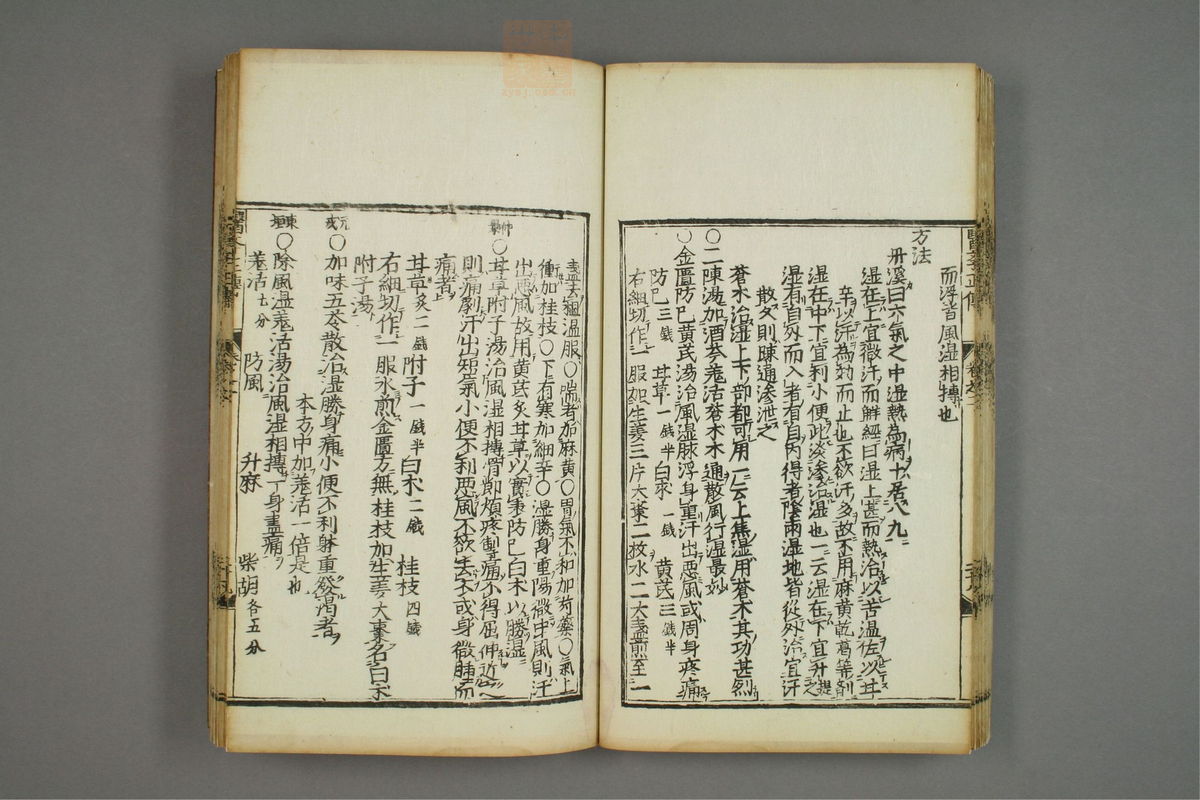 而浮者風湿相搏也
方法
丹溪曰六氣之中湿熱為病十居八九
湿在上宜微汗而解經曰湿上甚而熱治以苦温佐以甘
辛以汗為効而止也不欲汗多故不用麻黄乾葛等剤
湿在中下宜利小便此淡滲治湿也一云湿在下宜升提之
湿有自外而入者有自内得者陰雨湿地皆從外治宜汗
散久則踈通滲泄之
蒼朮治湿上下部都可用一云上焦湿用蒼朮其功甚烈
〇二陳湯加酒芩羗活蒼朮木通散風行湿最妙
〇金匱防已黄芪湯治風湿脉浮身重汗出悪風或周身疼痛
防已三錢 甘草一錢半 白朮一錢 黄芪三錢半
右細切作一服加生姜三片大棗二枚水二大盞煎至一
盞去粗温服〇喘者加麻黄〇胃氣不和加芍藥〇氣上
衝加桂枝〇下有寒加細辛〇湿勝身重陽微中風則汗
出悪風故用黄芪炙甘草以實表防已白朮以勝湿
仲景〇甘草附子湯治風湿相搏骨節煩疼掣痛不得屈伸近之
則痛劇汗出短氣小便不利悪風不欲去衣或身微腫而
痛者
甘草炙二錢 附子一錢半 白朮二錢 桂枝四錢
右細切作一服水煎金匱方無桂枝加生姜大棗名白朮
附子湯
元戎〇加味五苓散治湿勝身痛小便不利躰重發渴者
本方中加羗活一倍是也
東垣〇除風湿羗活湯治風湿相搏一身盡痛
羗活七分 防風 升麻 柴胡各五分